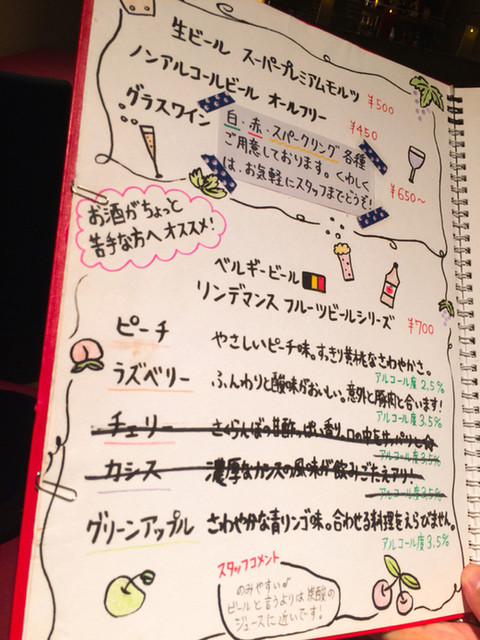 生ビール スーパープレミアムモルツ ¥500
ノンアルコールビール オールフリー ¥450
グラスワイン
白・赤・スパークリング各種
ご用意しております。くわしく
は、お気軽にスタッフまでどうぞ!
¥650〜
お酒がちょっと
苦手な方へオススメ!
ベルギービール
リンデマンス フルーツビールシリーズ ¥700
ピーチ やさしいピーチ味。すっきり気軽なさわやかさ。
アルコール度 2.5%
ラズベリー ふんわりと酸味がおいしい。意外と豚肉と合います!
アルコール度 3.5%
チェリー さくらんぼの甘酸っぱい香り。口の中をサッパリと
アルコール度 3.5%
カシス 濃厚なカシスの風味が飲みごたえアリ!
アルコール度 3.5%
グリーンアップル さわやかな青リンゴ味。合わせる料理をえらびません。
アルコール度 3.5%
スタッフコメント
のみやすい♪
ビールと言うよりは炭酸の
ジュースに近いです!